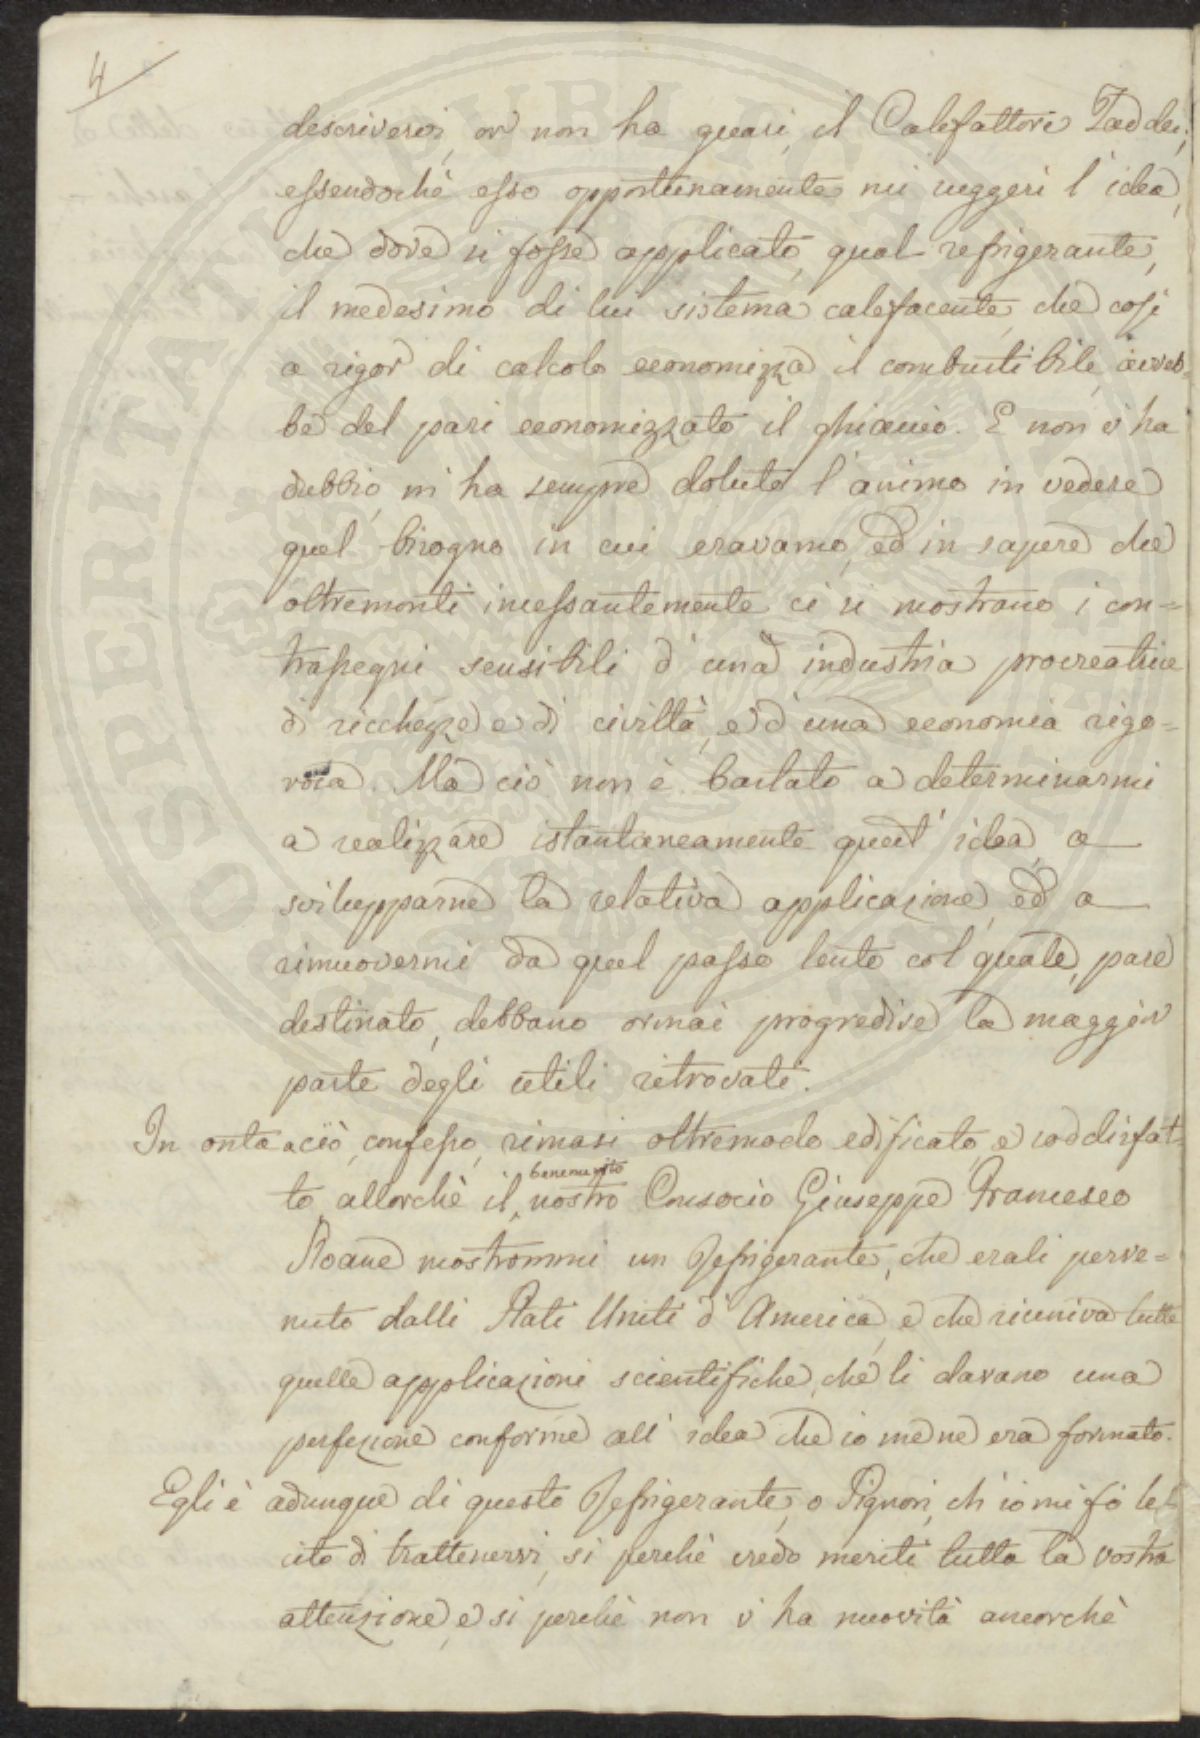 4
descrivervi, or non ha quasi, il Calefattore Taddei,
essendochè esso opportunamente mi suggerì l'idea,
che dove si fosse applicato, qual refrigerante,
il medesimo di lui sistema calefacente, che così
a rigor di calcolo economizza il combustibile, avreb=
be del pari economizzato il ghiaccio. E non v'ha
dubbio, m'ha sempre doluto l'animo in vedere
quel bisogno in cui eravamo, ed in sapere che
oltremonti incessantemente ci si mostrano i con=
trassegni sensibili d'una industria procreatrice
di ricchezze e di civiltà, e d'una economia rigo=
rosa. Ma ciò non è bastato a determinarmi
a realizzare istantaneamente quest'idea, a
svilupparne la relativa applicazione, ed a
rimuovermi da quel passo lento col quale, pare
destinato, debbano ormai progredire la maggior
parte degli utili ritrovati.
In onta a ciò, confesso, rimasi oltremodo edificato, e soddisfat=
to allorchè il benemerito nostro Consocio Giuseppe Francesco
Roane mostrommi un Refrigerante, che erali perve=
nuto dalli Stati Uniti d'America, e che riuniva tutte
quelle applicazioni scientifiche, che li davano una
perfezione conforme all'idea che io me ne era formato.
Egli è adunque di questo Refrigerante, o Signori, ch'io mi fò le=
cito di trattenervi, sì perchè credo meriti tutta la vostra
attenzione, e sì perchè non v'ha nuovità ancorchè
PROSPERITATI PUBLICAE